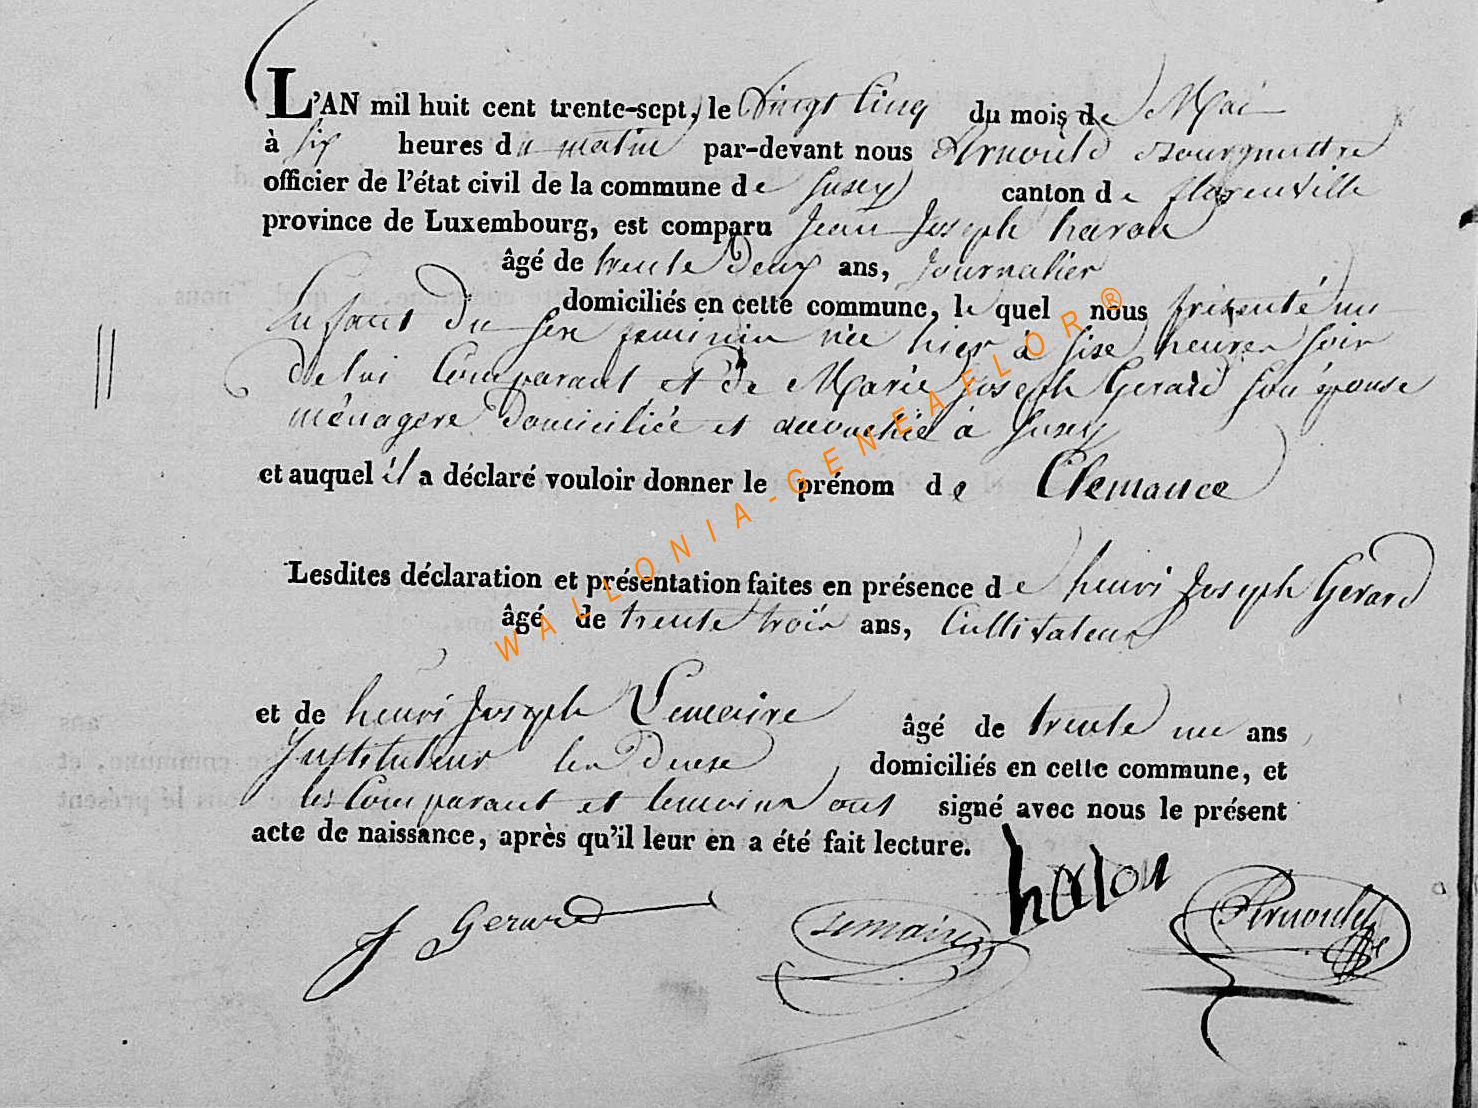 L'AN mil huit cent trente-sept, le Vingt Cinq du mois de Mai
à six heures du matin par-devant nous Arnould Bourgmettre
officier de l'état civil de la commune de Suxy canton de florenville
province de Luxembourg, est comparu Jean Joseph haron
âgé de trente Deux ans, Journalier
domiciliés en cette commune, lequel nous présenté un
Enfant Du sexe feminin née hier à sixe heures soir
De lui Comparant et De Marie Joseph Gerard son épouse
ménagere Domiciliée et accouchée à Suxy
et auquel il a déclaré vouloir donner le prénom de Clemance
Lesdites déclaration et présentation faites en présence de henri Joseph Gerard
âgé de trente trois ans, Cultivateur
et de henri Joseph Lemaire âgé de trente un ans
Instituteur domiciliés en cette commune, et
les Comparant et temoins ont signé avec nous le présent
acte de naissance, après qu'il leur en a été fait lecture.
J Gerard Lemaire haron Arnould
WALLONIA-GENEAFLOR®